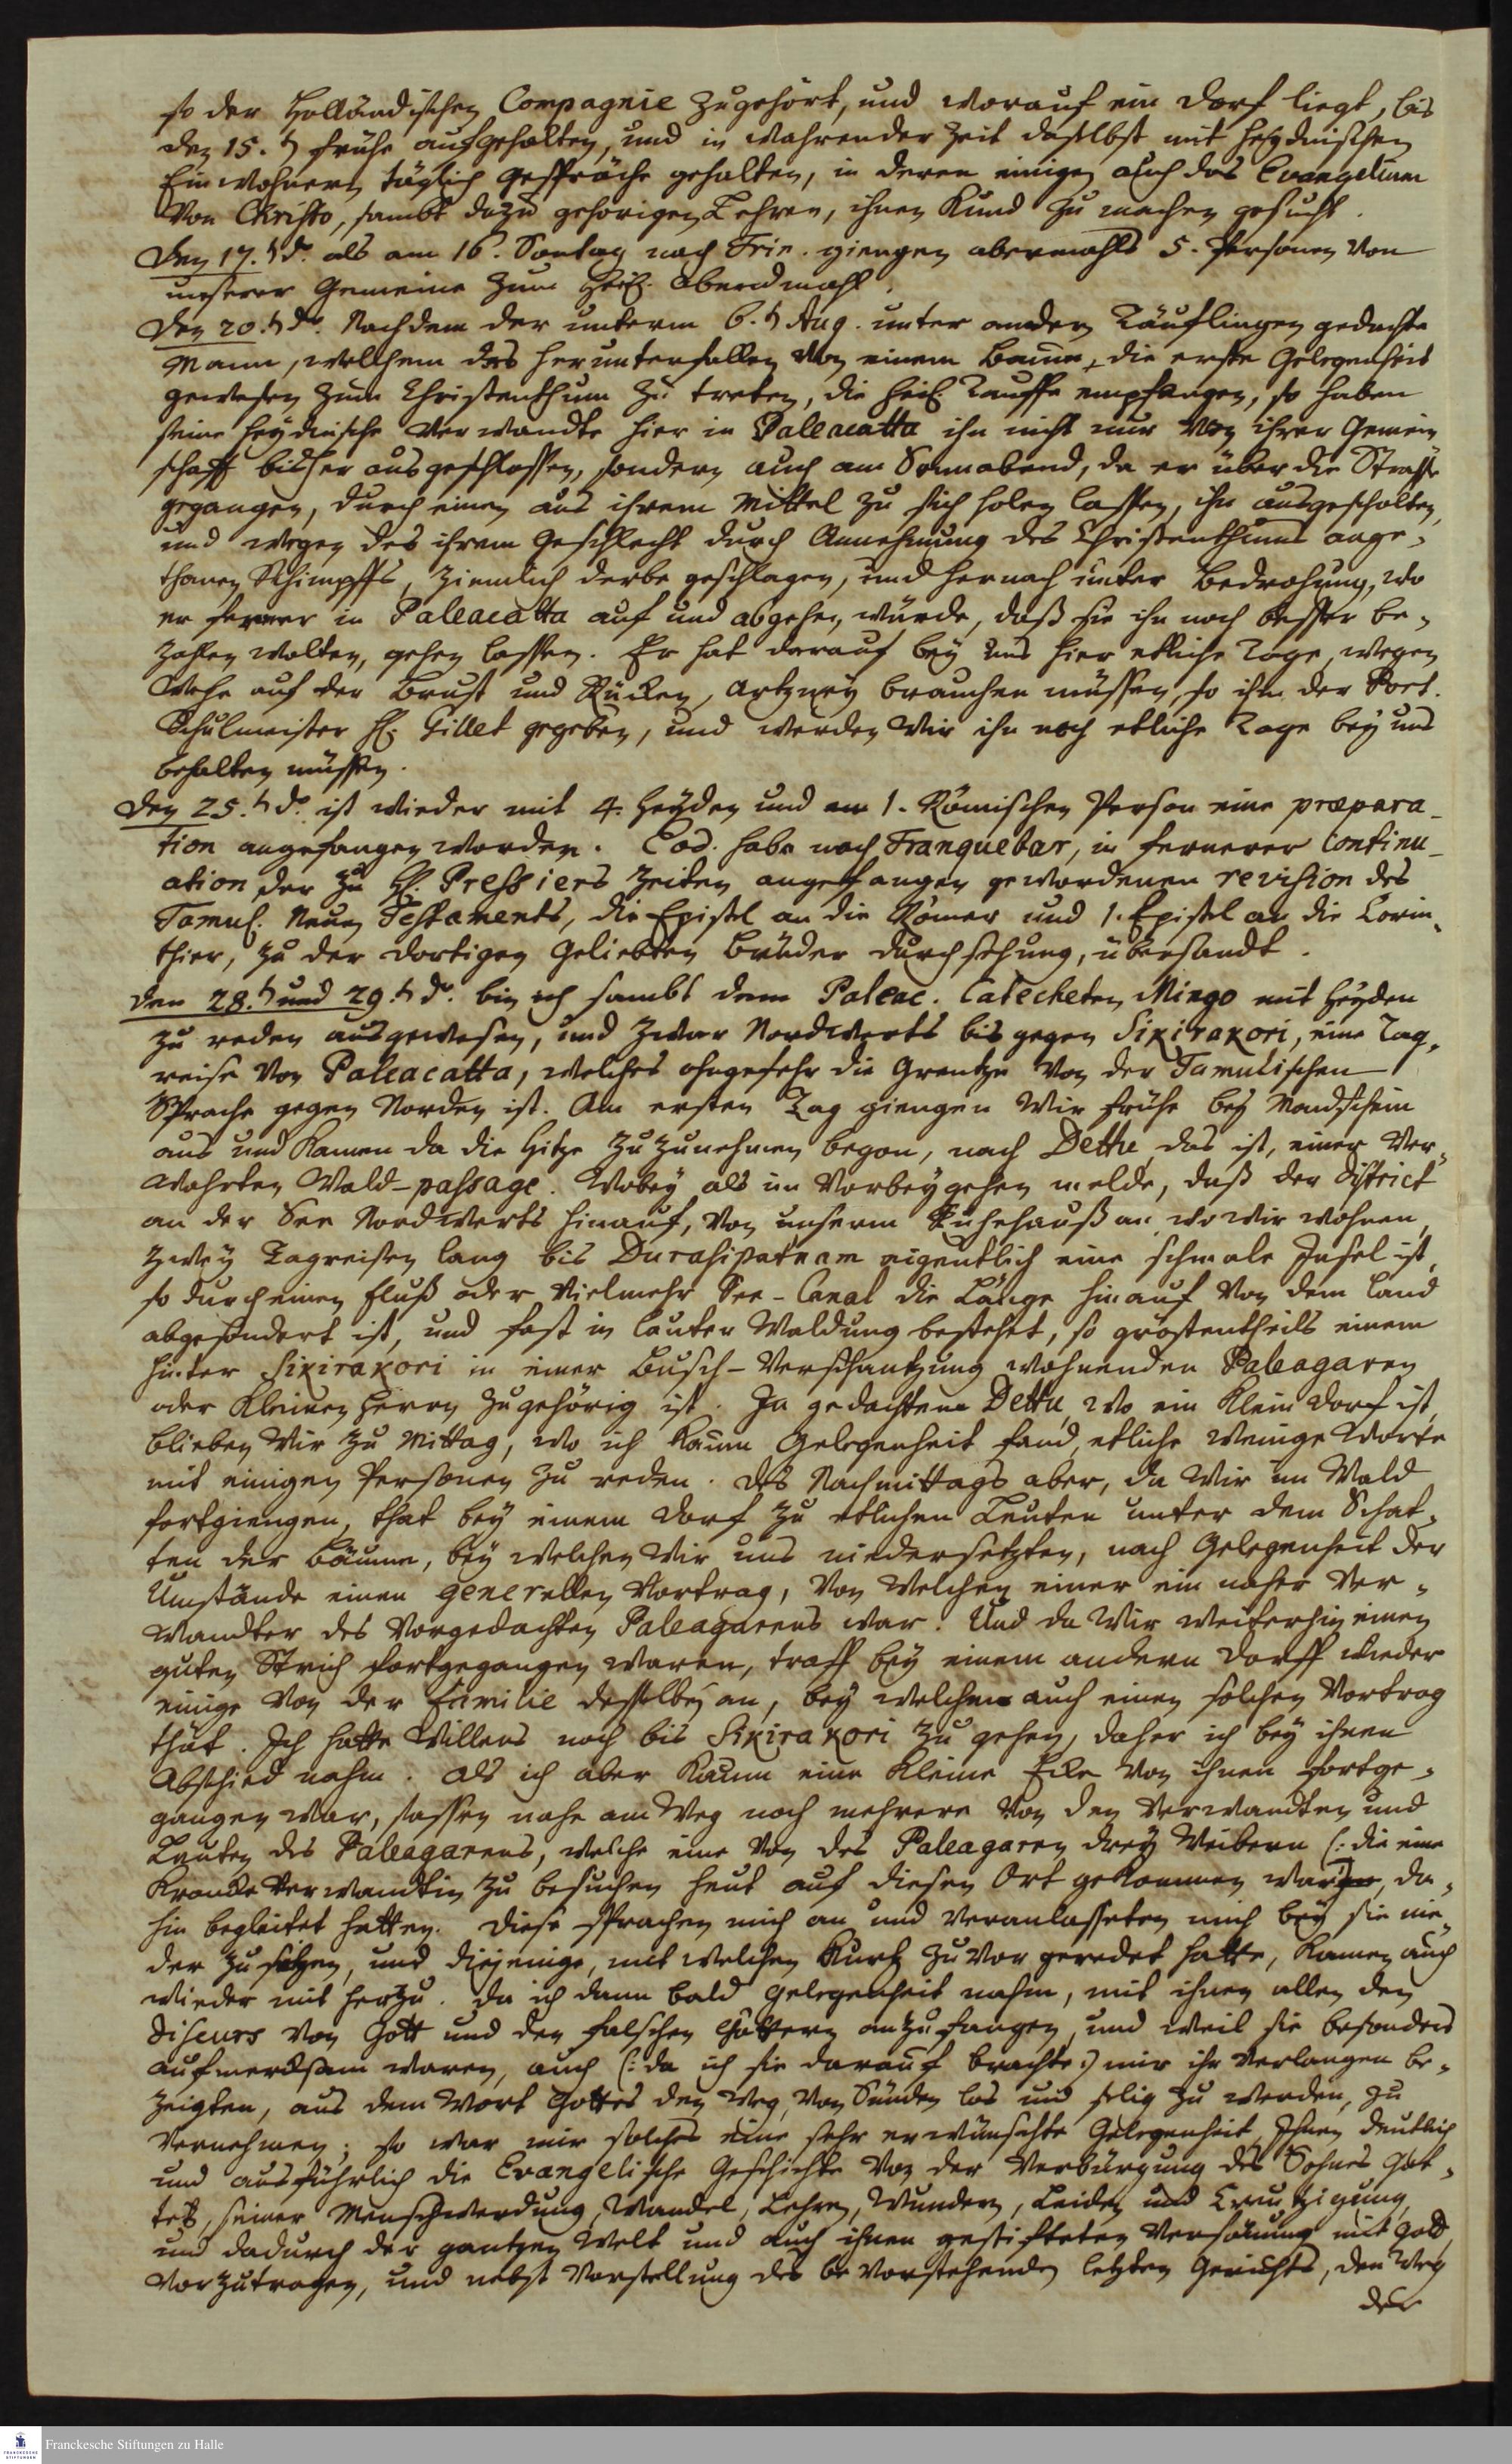 so der Holländischen Compagnie zugehört, und worauf ein Dorf liegt, bis
den 15.t frühe aufgehalten, und in wahrender Zeit daselbst mit heydnischen
Einwohnern täglich Gespräche gehalten, in deren einigen auch das Evangelium
von Christo, sambt dazu gehörigen Lehren, ihnen Kund zu machen gesucht.
Den 17.t do. als am 16. Sontag nach Trin. giengen abermahls 5. Personen von
unserer Gemeine zum Heil. Abendmahl.
Den 20.t do. Nachdem der unterm 6.t Aug. unter andern Täuflingen gedachte
Mann, welchem das herunterfallen von einem Baume, die erste Gelegenheit
gewesen zum Christenthum zu treten, die heil. Tauffe empfangen, so haben
seine heydnische Verwandte hier in Paleacatta ihn nicht nur von ihrer Gemein
schafft bisher ausgeschlossen, sondern auch am Sonnabend, da er über die Strasse
gegangen, durch einen aus ihrem Mittel zu sich holen lassen, ihn ausgescholten,
und wegen des ihrem Geschlecht durch Annehmung des Christenthums ange-
thanen Schimpffs, ziemlich derbe geschlagen, und hernach unter Bedrohung, wo
er ferner in Paleacatta auf und abgehen würde, daß sie ihn noch besser be-
zahlen wolten, gehen lassen. Er hat darauf bey uns hier etliche Tage, wegen
Wehe auf der Brust und Rücken, Artzney brauchen müssen, so ihm der Port.
Schulmeister H. Gillet gegeben, und werden wir ihn noch etliche Tage bey uns
behalten müssen.
Den 25.t do. ist wieder mit 4. Heyden und 1. Römischen Person eine præpara-
tion angefangen worden. Eod. habe nach Tranquebar, in fernerer Continu-
ation der zu H. Pressiers Zeiten angefangen gewordenen revision des
Tamul. Neuen Testaments, die Epistel an die Römer und 1. Epistel an die Corin-
thier, zu der dortigen Geliebten Brüder durchsehung, übersandt.
Den 28.t und 29.t do. bin ich sambt dem Paleac. Catecheten Mingo mit Heyden
zu reden ausgewesen, und zwar Nordwerts bis gegen Sikirakori, eine Tag-
reise von Paleacatta, welches ohngefehr die Grentze von der Tamulischen
Sprache gegen Norden ist. Am ersten Tag giengen wir frühe bey Mondschein
aus und kamen da die Hitze zuzunehmen begon, nach Dettu, das ist, einer Ver-
wahrten Wald-passage. Wobey als im Vorbeygehen melde, daß der District
an der See Nordwerts hinauf, von unserm Ruhehauß an wo wir wohnen,
zwey Tagreisen lang bis Durasipatnam eigentlich eine schmale Insel ist,
so durch einen Fluß oder vielmehr See-Canal die Länge hinauf von dem Land
abgesondert ist, und fast in lauter Waldung bestehet, so grostentheils einem
hinter Sikirakori in einer Busch-Verschantzung wohnenden Paleagaren
oder Kleinen Herrn zugehörig ist. In gedachtem Dettu, wo ein Klein Dorf ist,
blieben wir zu Mittag, wo ich kaum Gelegenheit fand, etliche wenige Worte
mit einigen Personen zu reden. Des Nachmittags aber, da wir im Wald
fortgiengen, that bey einem Dorf zu etlichen Leuten unter dem Schat-
ten der Bäume, bey welchen wir uns niedersetzten, nach Gelegenheit der
Umstände einen generellen Vortrag, von welchen einer ein naher Ver-
wandter des vorgedachten Paleagarens war. Und da wir weiterhin einen
guten Strich fortgegangen waren, traff bey einem andern Dorff wieder
einige von der Familie desselben an, bey welchen auch einen solchen Vortrag
thät. Ich hatte Willens noch bis Sikirakori zu gehen, daher ich bey ihnen
Abschied nahm. Als ich aber kaum eine Kleine Ecke von ihnen fortge-
gangen war, sassen nahe am Weg noch mehrere von den Verwandten und
Leuten des Paleagarens, welche eine von des Paleagaren drey Weibern (: die eine
krancke Verwandtin zu besuchen heut auf diesen Ort gekommen war :), da-
hin begleitet hatten. Diese sprachen mich an und veranlasseten mich bey sie nie-
der zu setzen, und diejenige, mit welchen kurtz zuvor geredet hatte, kamen auch
wieder mit hertzu. Da ich dann bald Gelegenheit nahm, mit ihnen allen den
Discurs von Gott und den falschen Göttern anzufangen, und weil sie besonders
aufmercksam waren, auch (: da ich sie darauf brachte :) mir ihr Verlangen be-
zeigten, aus dem Wort Gottes den Weg, von Sünden los und selig zu werden, zu
vernehmen; so war mir solches eine sehr erwünschte Gelegenheit, Ihnen deutlich
und ausführlich die Evangelische Geschichte von der Verbürgung des Sohnes Got-
tes, seiner Menschwerdung, Wandel, Lehren, Wundern, Leiden und Creutzigung,
und dadurch der gantzen Welt und auch ihnen gestifteten Versönung mit Gott,
vorzutragen, und nebst Vorstellung des bevorstehenden letzten Gerichts, den Weg
der
Franckesche Stiftungen zu Halle